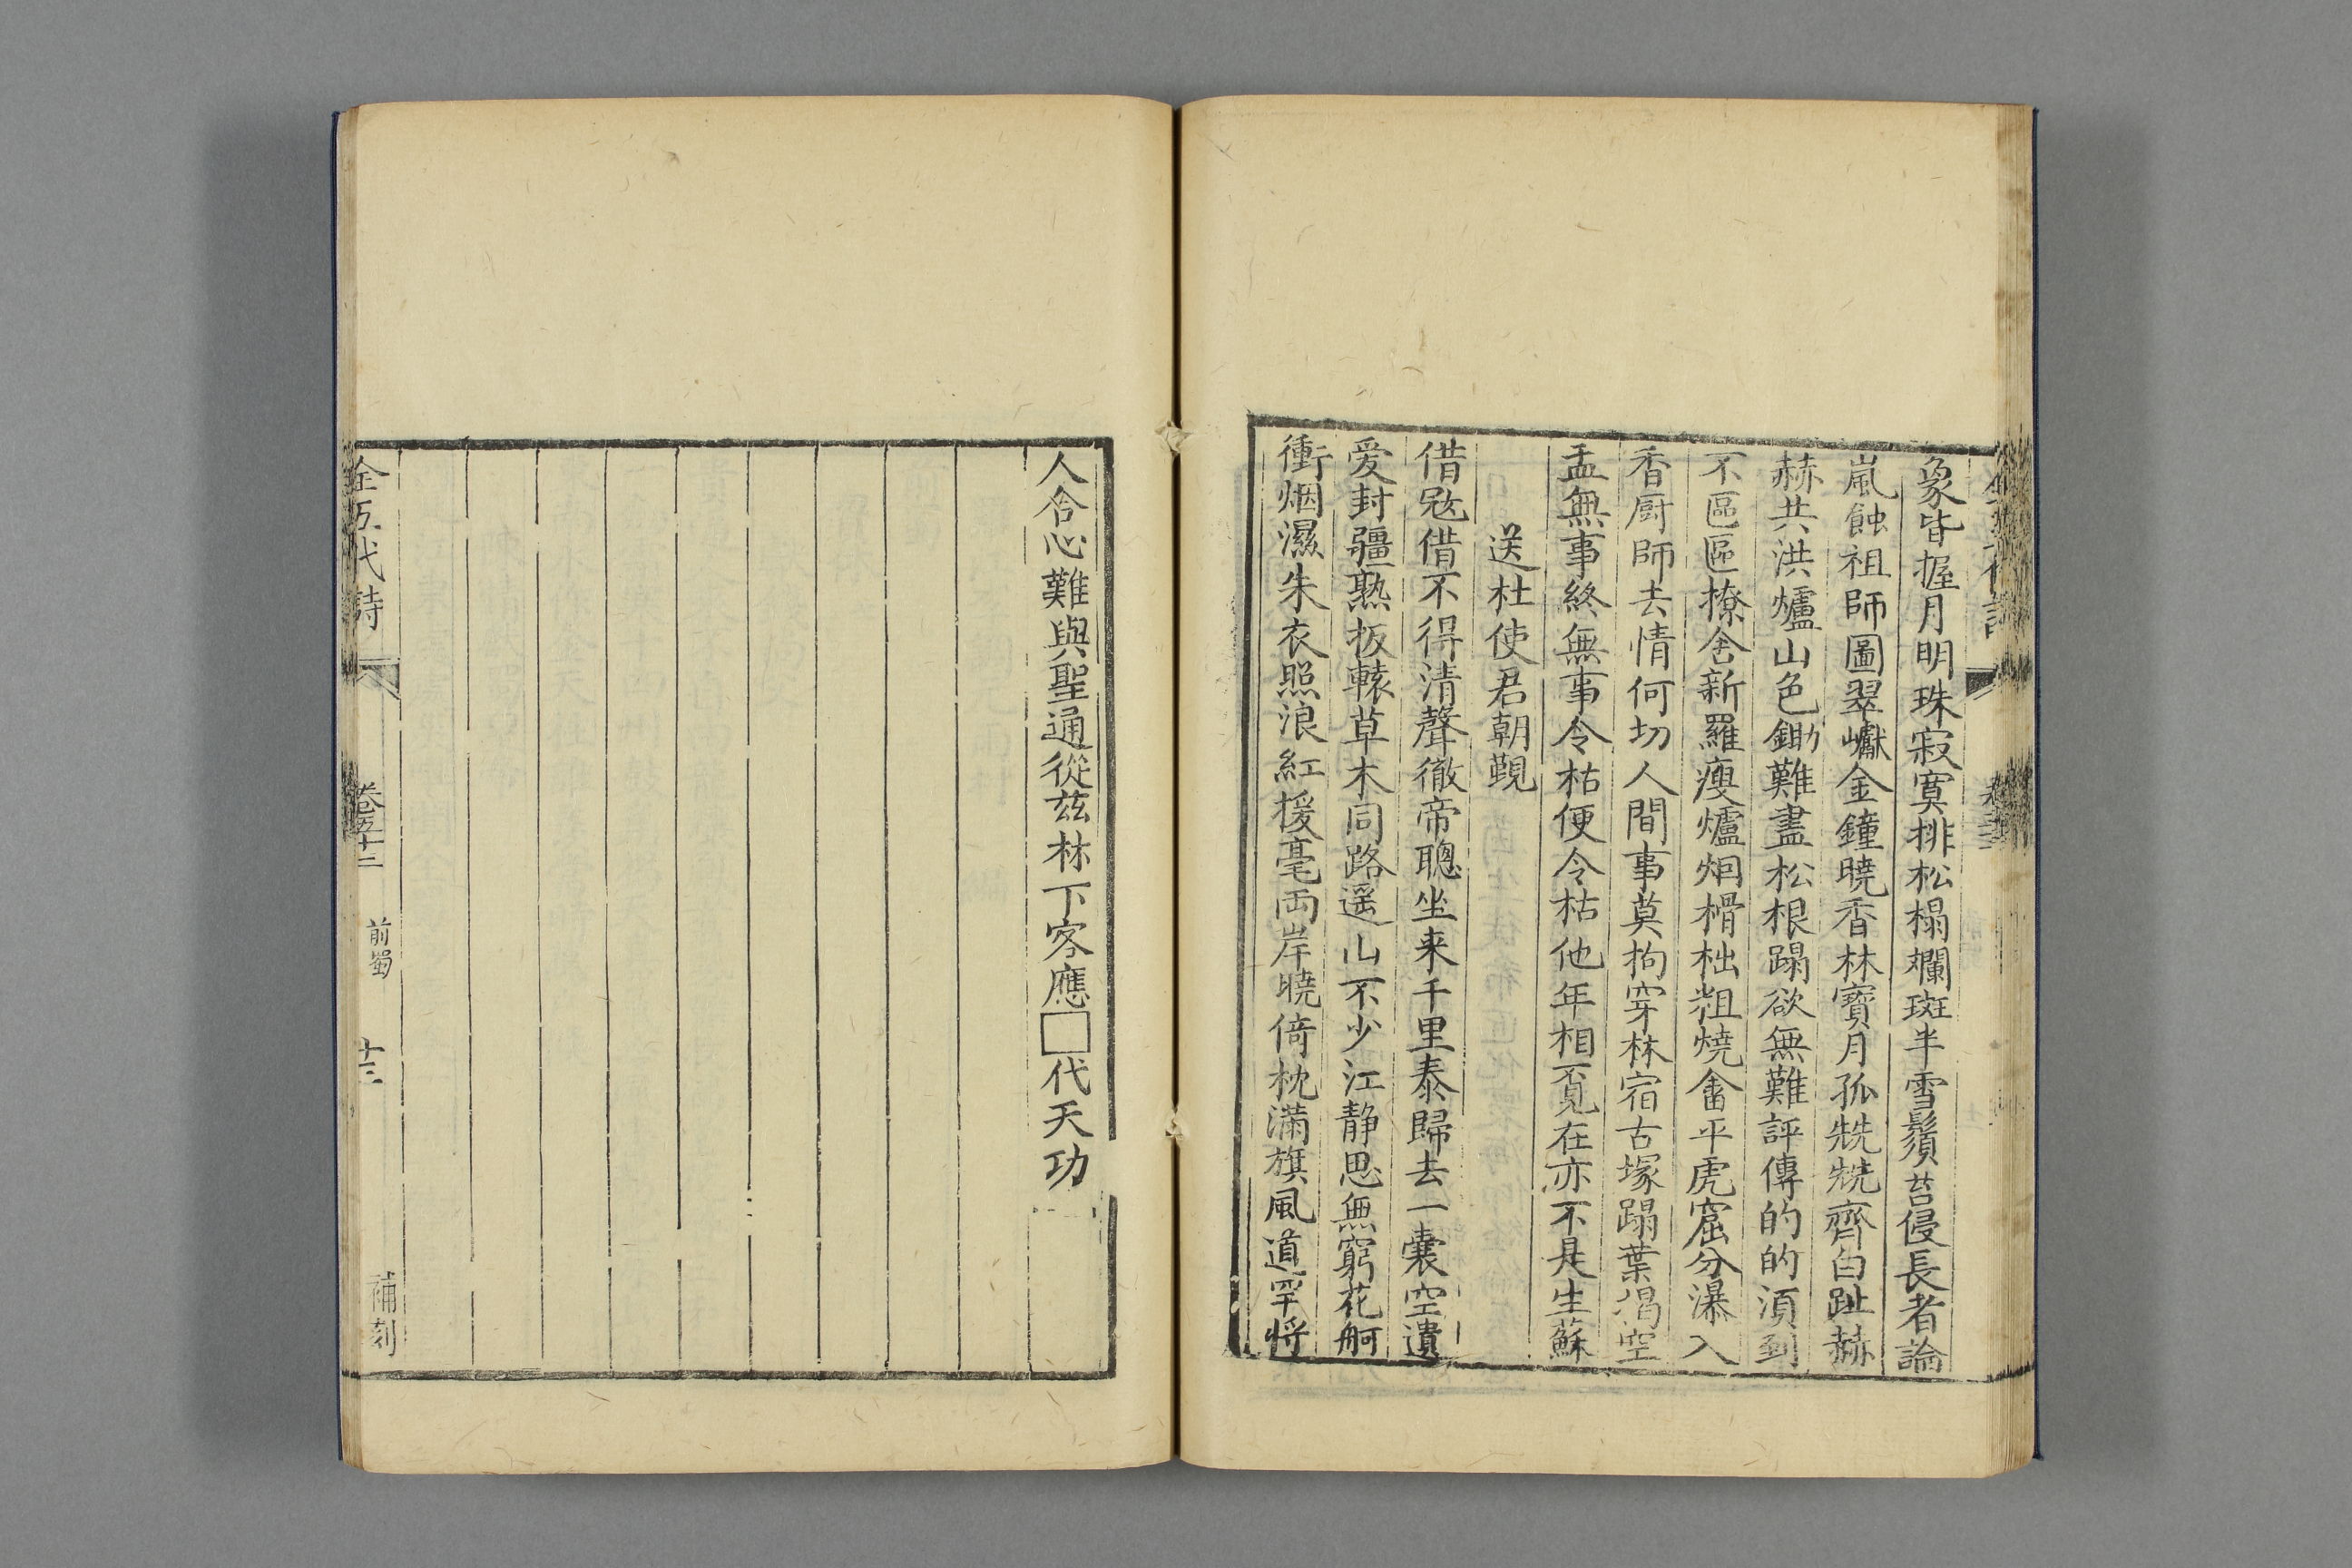 象皆握月明珠寂寞排松榻斕斑半雪鬚苔侵長者論
嵐蝕祖師圖翠巘金鐘曉香林寶月孤兟兟齊白趾赫
赫共洪爐山色鋤難盡松根蹋欲無難評傳的的須到
不區區撩舍新羅瘦爐烟榾柮粗燒畬平虎窟分瀑入
香厨師去情何切人間事莫拘穿林宿古塚蹋葉揭空
盂無事終無事令枯便令枯他年相覓在亦不是生蘇
送杜使君朝覲
借冦借不得清聲徹帝聰坐来千里泰歸去一囊空遺
爱封疆熟扳轅草木同路遥山不少江静思無窮花舸
衝烟濕朱衣照浪紅援毫両岸曉倚枕滿旗風道罕將
人合心難與聖通從兹林下客應□代天功
全五代詩 卷五十三 前蜀 十三 補刻